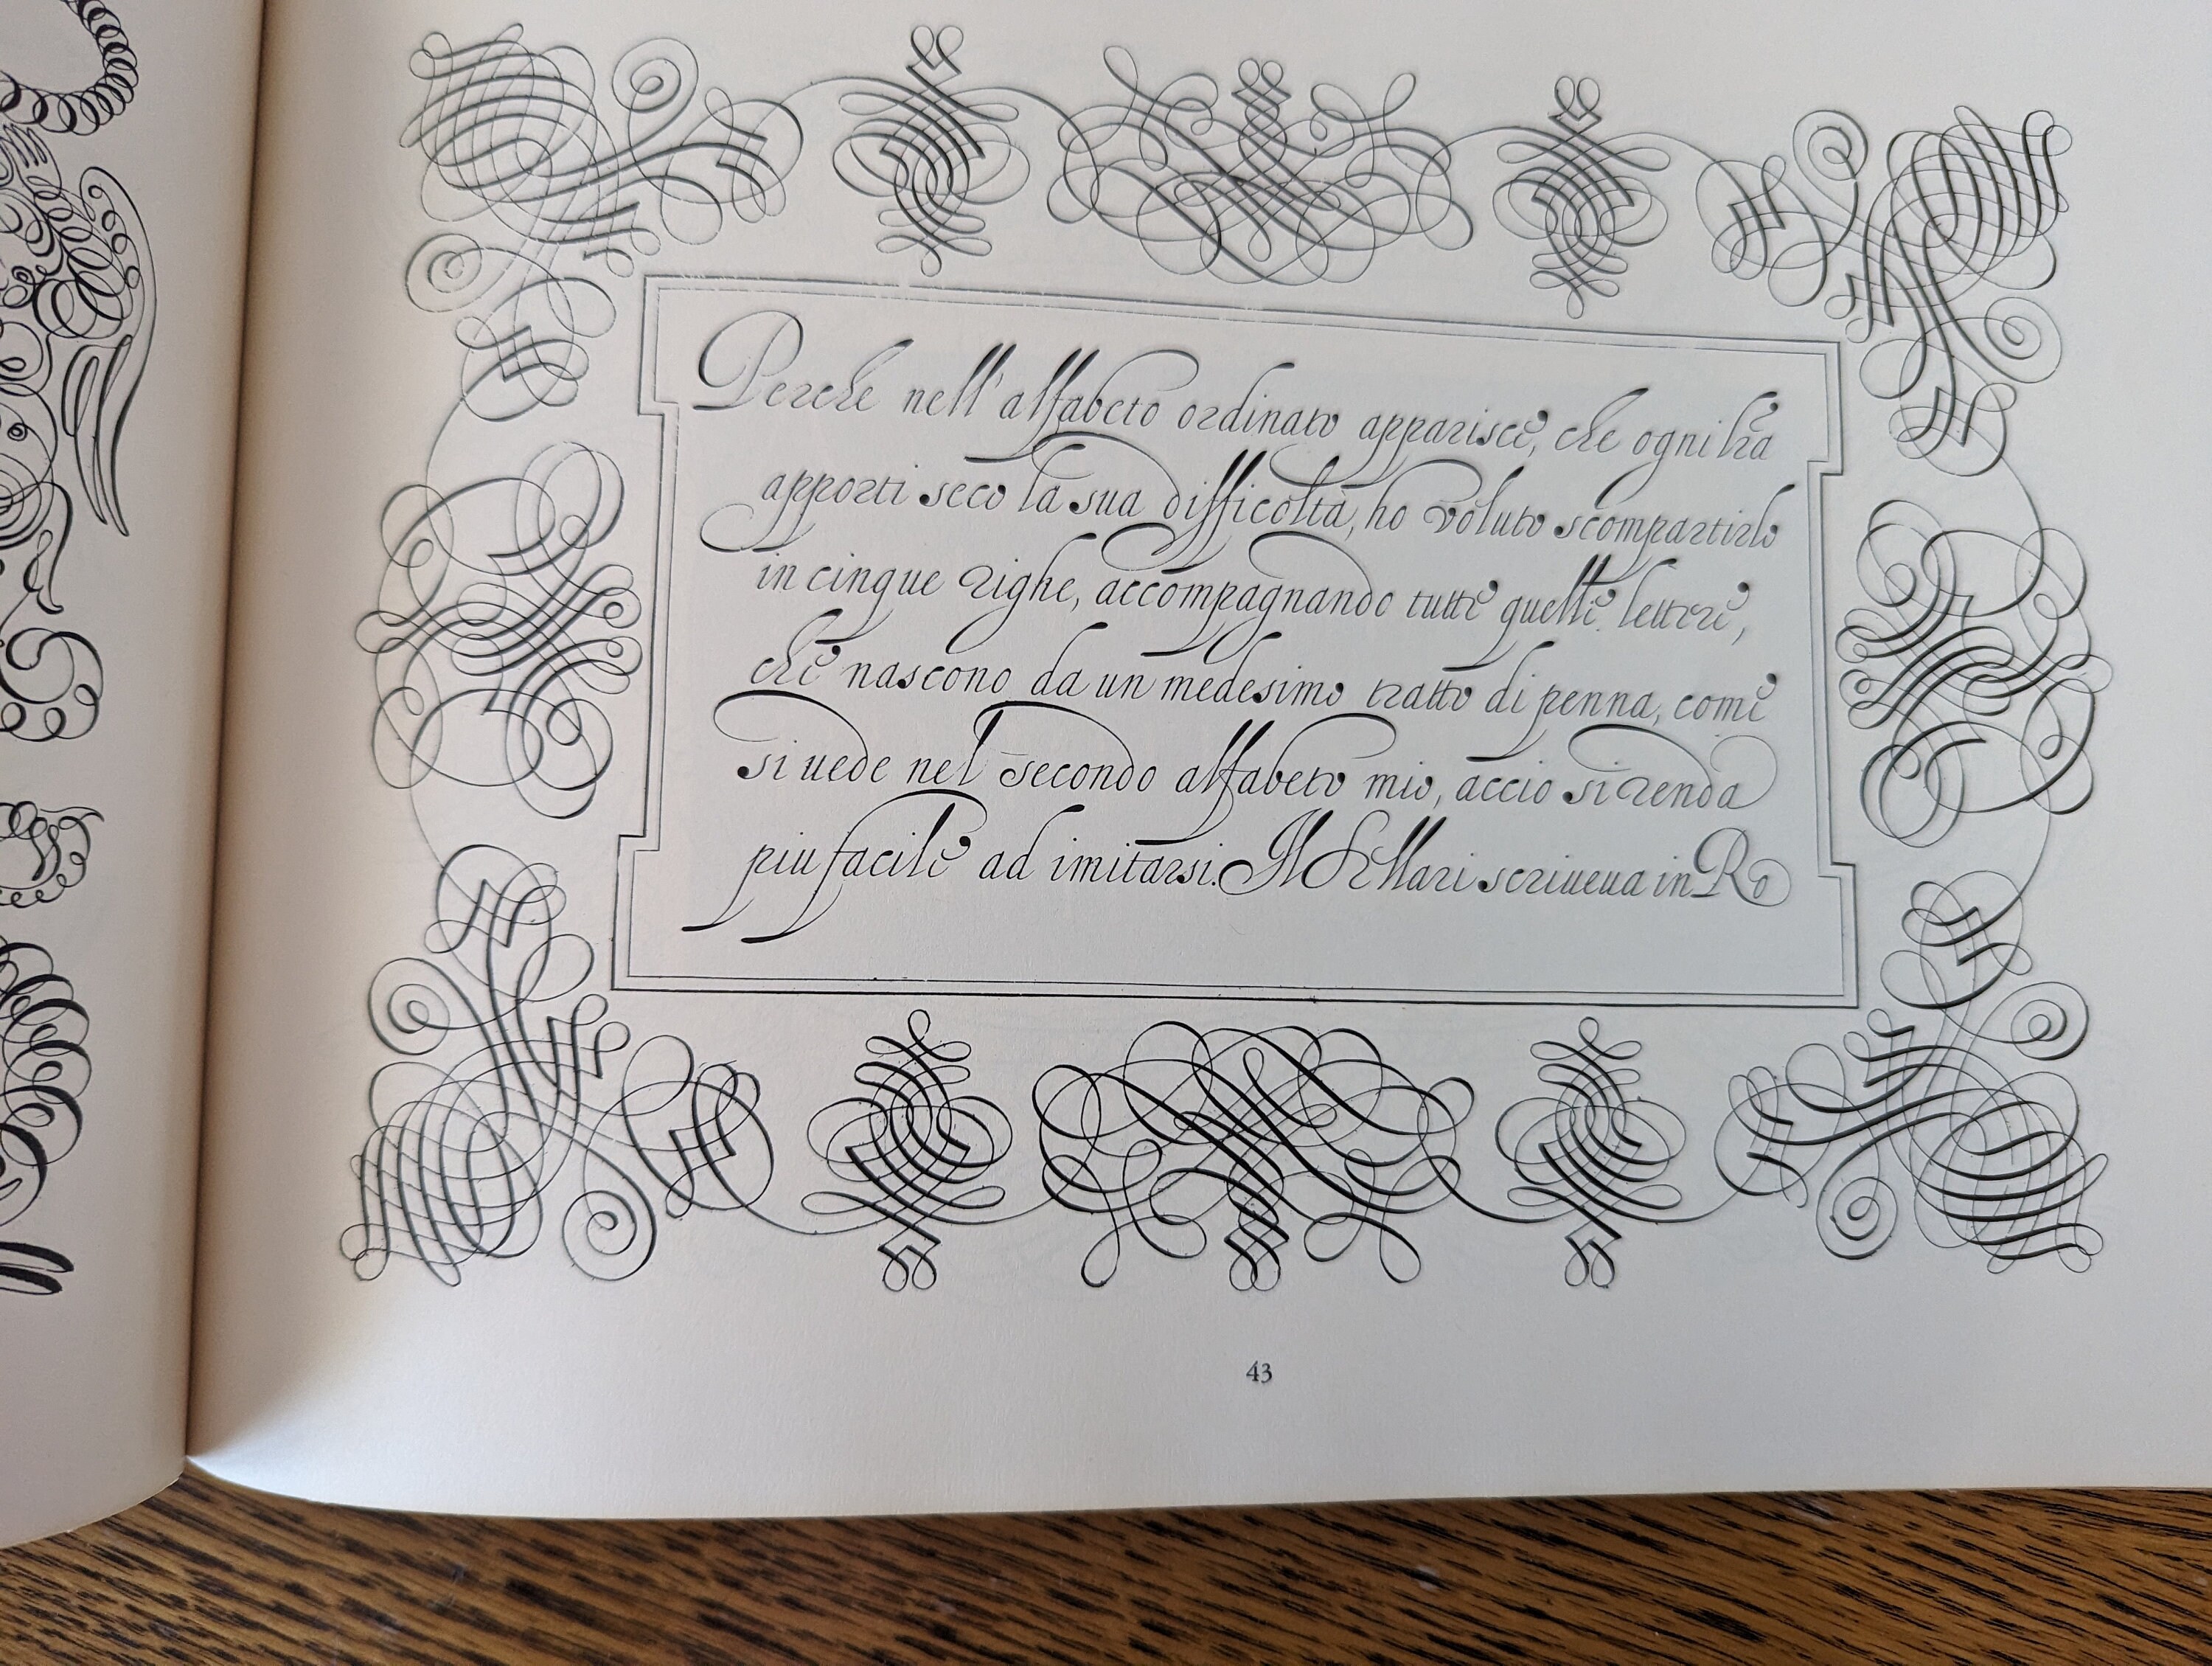 Perche nell'alfabeto ordinato apparisce, che ogni lra
apporti seco la sua difficolta, ho voluto scompartirlo
in cinque righe, accompagnando tutte quelle lettere,
che nascono da un medesimo tratto di penna, come
si uede nel secondo alfabeto mio, accio si renda
piu facile ad imitarsi. Il Sellari scriueua in Ro
43